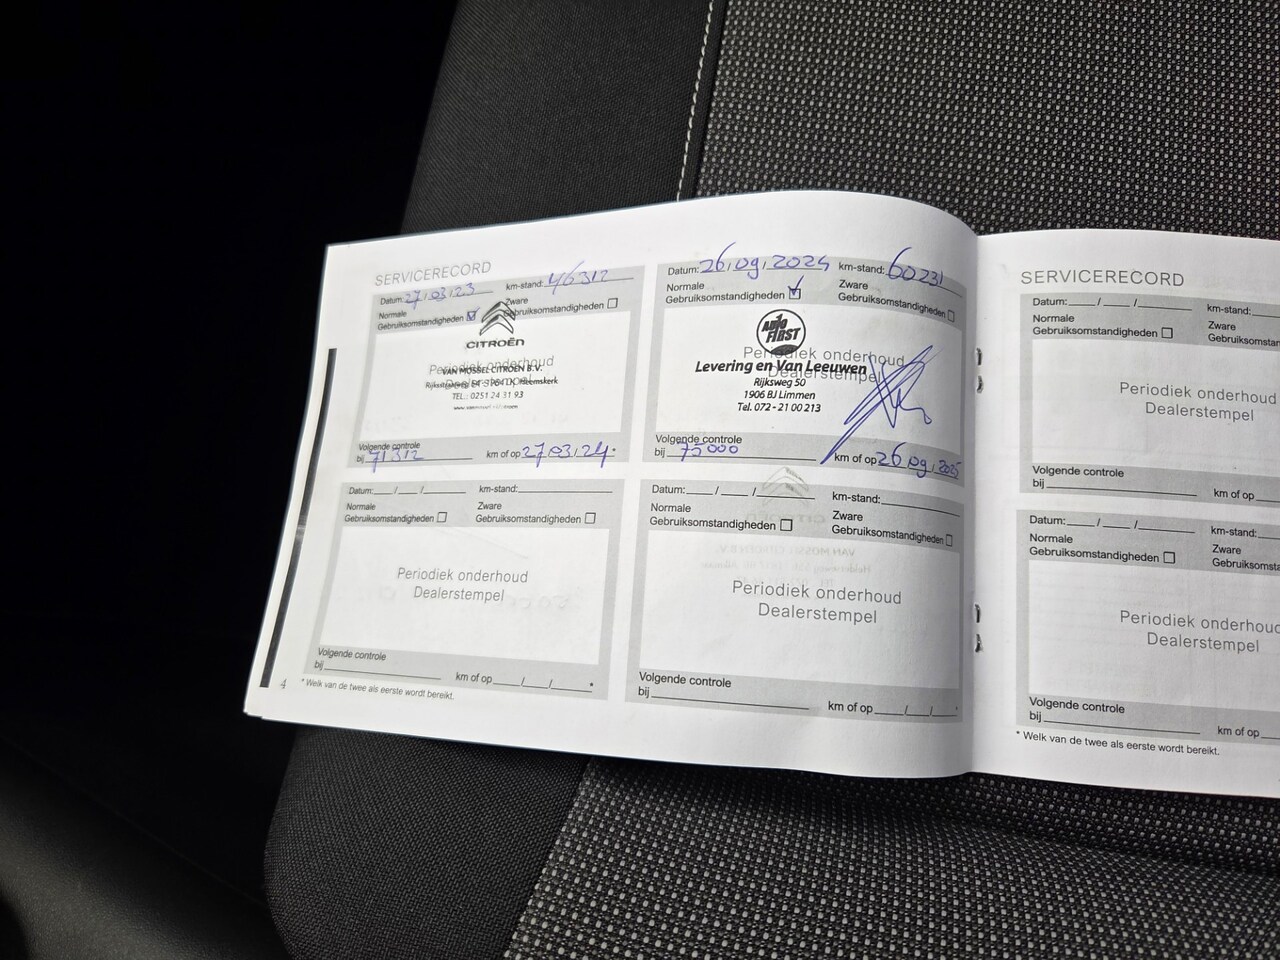 SERVICERECORD
Datum: 27/03/23 km-stand: 46312
Normale Gebruiksomstandigheden
Zware Gebruiksomstandigheden
CITROËN
Periodiek onderhoud
VAN MOSSEL CITROËN B.V.
Heemskerk
TEL.: 0251 24 31 93
Volgende controle
bij 71312 km of op 27/03/24.
Datum: 26/09/2024 km-stand: 60231
Normale Gebruiksomstandigheden
Zware Gebruiksomstandigheden
1 AUTO FIRST
Periodiek onderhoud
Dealerstempel
Levering en Van Leeuwen
Rijksweg 50
1906 BJ Limmen
Tel. 072 - 21 00 213
Volgende controle
bij 75000 km of op 26/09/2025
Datum:___/___/______ km-stand:
Normale Gebruiksomstandigheden
Zware Gebruiksomstandigheden
Periodiek onderhoud
Dealerstempel
Volgende controle
bij km of op___/___/______*
Datum:___/___/______ km-stand:
Normale Gebruiksomstandigheden
Zware Gebruiksomstandigheden
Periodiek onderhoud
Dealerstempel
Volgende controle
bij km of op___/___/___*
4 * Welk van de twee als eerste wordt bereikt.
SERVICERECORD
Datum:___/___/______ km-stand:
Normale Gebruiksomstandigheden
Zware
Periodiek onderhoud
Dealerstempel
Volgende controle
bij km of op
Datum:___/___/______ km-stand:
Normale Gebruiksomstandigheden
Zware
Periodiek onderhoud
Dealerstempel
Volgende controle
bij km of op
* Welk van de twee als eerste wordt bereikt.